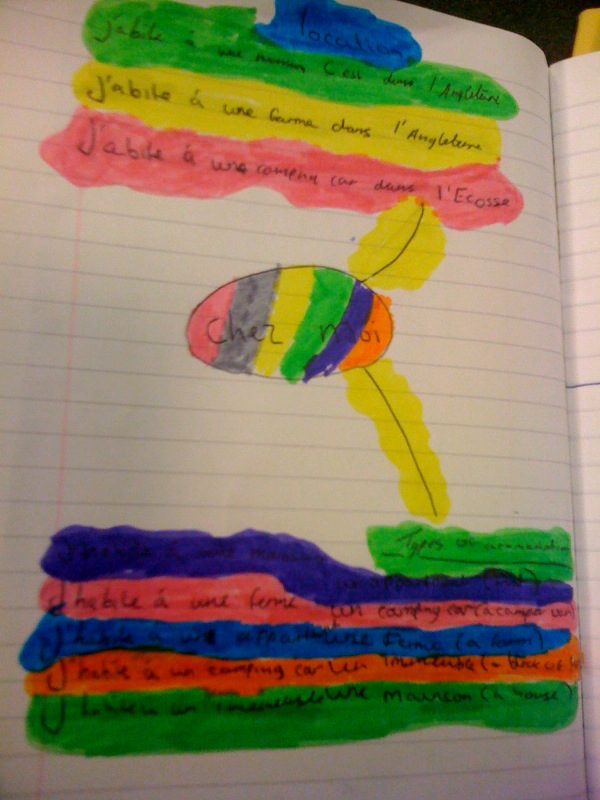 location
J'abite à une maison C'est dans l'Angleterre
J'abite à une farme dans l'Angleterre
J'abite à une camping car dans l'Ecosse
Chez Moi
Types of
J'habite à une maison
un appartment (flat)
J'habite à une ferme
un camping car (a camper van)
J'habite à un appartment
une Ferme (a farm)
J'habite à un camping car
un Immeuble (a block of
J'habite à un immeuble
une Maison (a house)